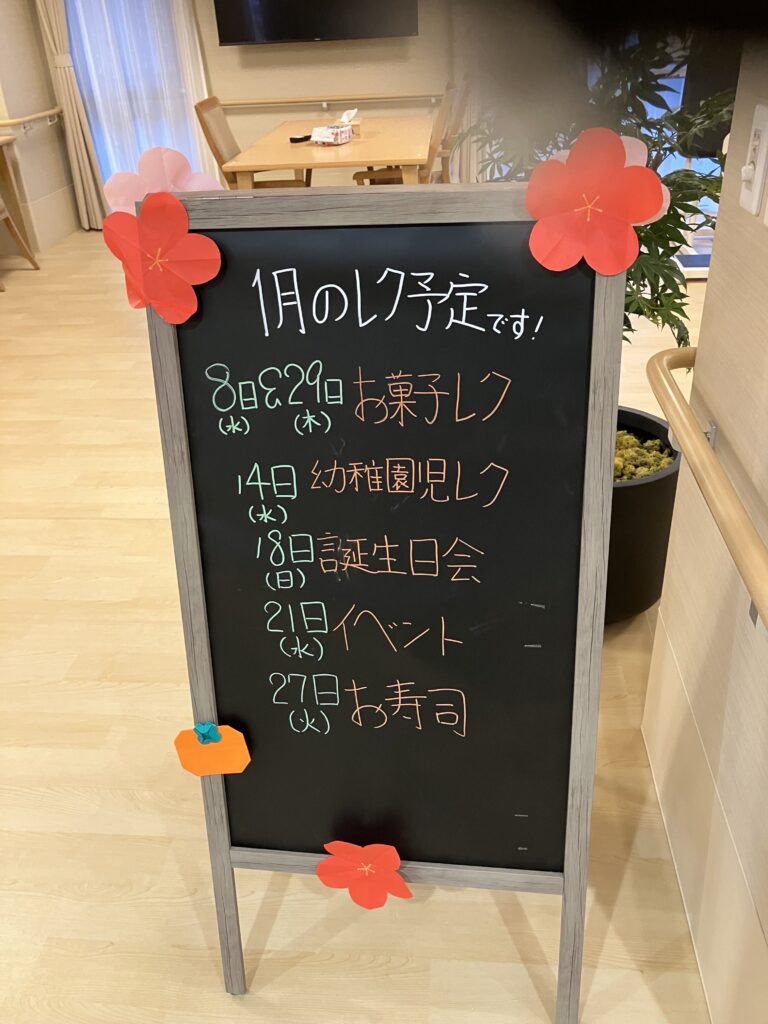 1月のレク予定です!
8日&29日 お菓子レク
(水) (木)
14日 幼稚園児レク
(水)
18日 誕生日会
(日)
21日 イベント
(水)
27日 お寿司
(火)